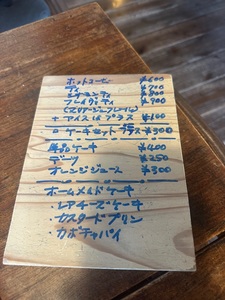 ホットコーヒー ¥600
ティ ¥700
ミルクティ ¥800
フレイヴティ ¥700
+ アイスはプラス ¥100
□ ケーキセット プラス ¥300
単品ケーキ ¥400
デーツ ¥250
オレンジジュース ¥300
ホームメイドケーキ
・レアチーズケーキ
・カスタードプリン
・カボチャパイ